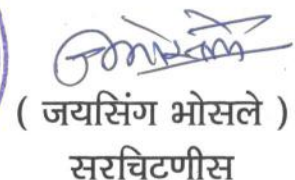 ( जयसिंग भोसले )
सरचिटणीस